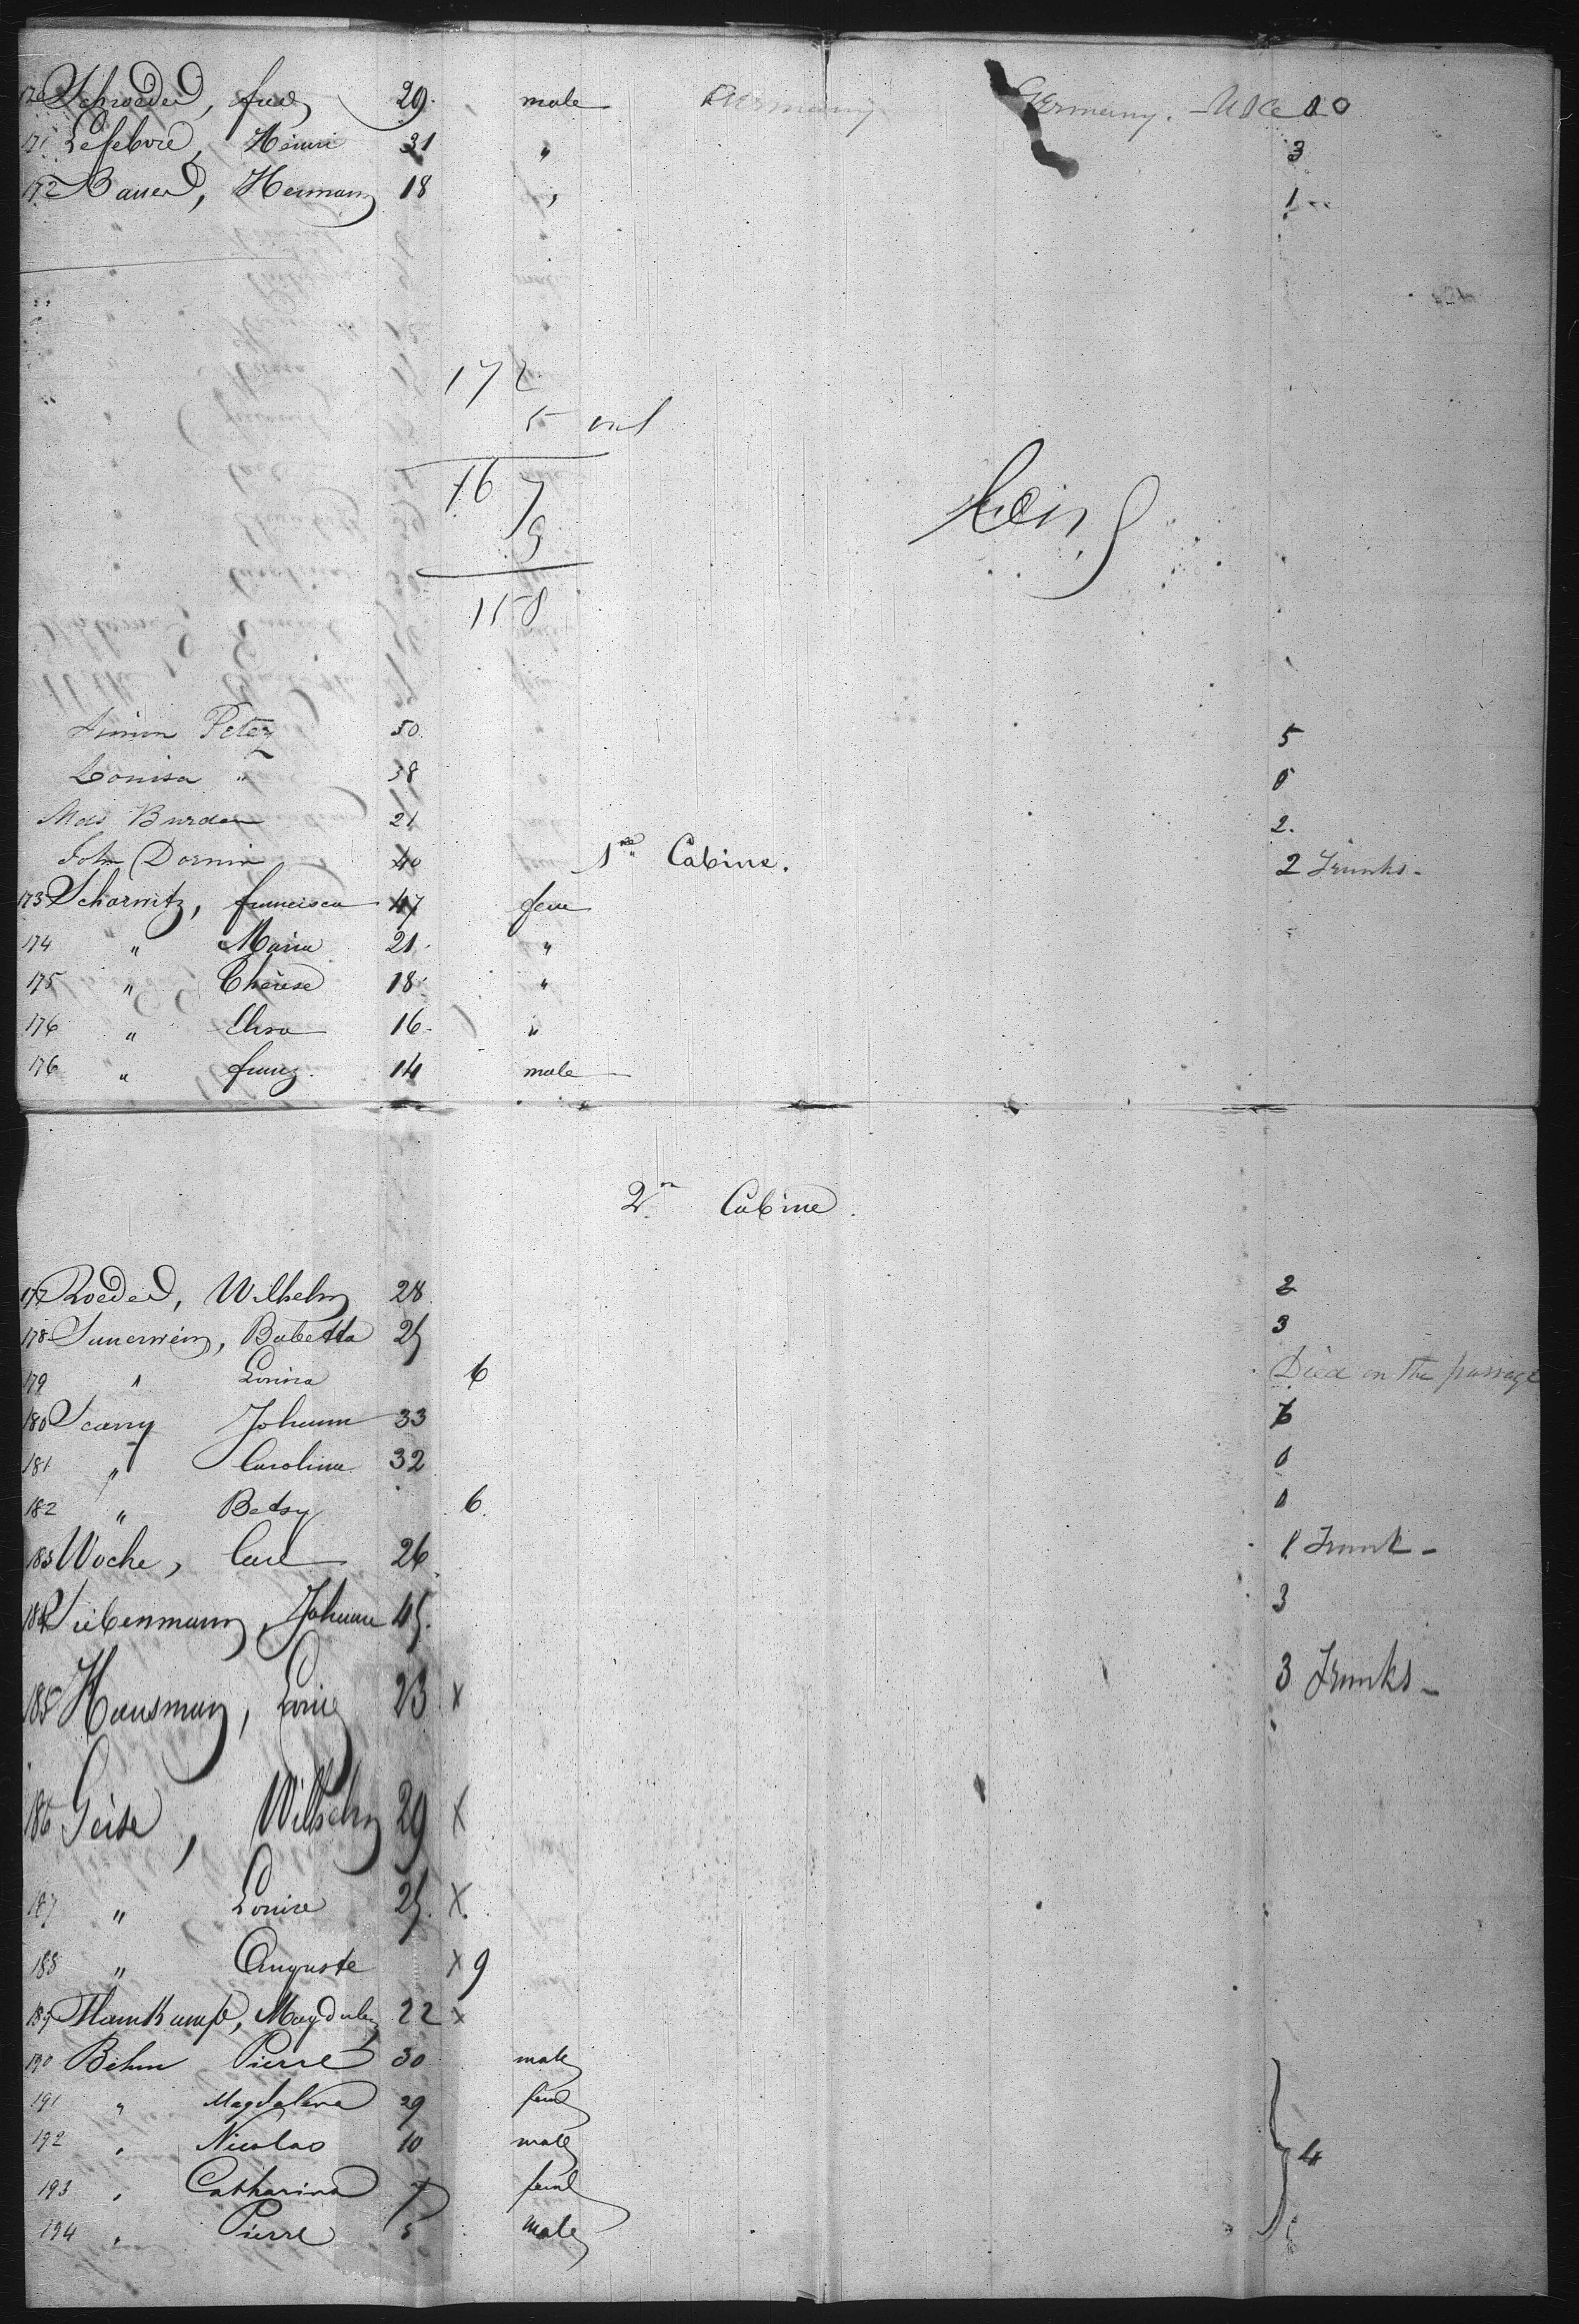 170 Schroeder, fred 29 male Germany Germany. - USA 0
171 Lefebvre, Hènri 31 " 3
172 Bauer, Hermann 18 " 1
172
5
167
9
158
Simon Peter 50 5
Louisa " 38 0
Burden 21 2.
John Dornin 40 1re Cabine. 2 Trunks -
173 Scharwitz, francisca 47 fem
174 " Maria 21 "
175 " Thérèse 18 "
176 " Elisa 16 "
176 " franz 14 male
2e Cabine.
177 Roeder, Wilhelm 28 2
178 Sauerwein, Babetta 25 3
179 " Louisa 6 Died on the passage
180 Scarry Johann 33 6
181 " Carolina 32 0
182 " Betsy 6 0
183 Woche, Carl 26 1 Trunk -
184 Siebenmann, Johann 45. 3
185 Hausmann, Louis 23 x 3 Trunks -
186 Geise, Wilhelm 29 x
187 " Louise 25. x
188 " Auguste x 9
189 Magdalen 22 x
190 Behm Pierre 30 male
191 " Magdalena 29 feml
192 " Nicolas 10 male
193 " Catharina 7 feml 4
194 " Pierre 5 male